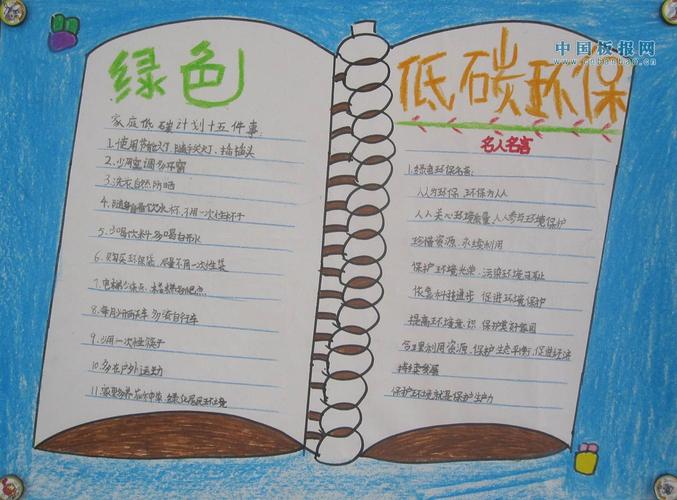 中国板报网
www.cnbanbao.cn
绿色
家庭低碳计划十五件事
1.使用节能灯 随手关灯、拔插头
2.少用空调多开窗
3.洗衣自然
4.随身自带饮水杯、不用一次性杯子
5.少喝饮料多喝白开水
6.购买环保袋、尽量不用一次性袋
7.电梯少乘
8.每月少开两天车 多骑自行车
9.少用一次性筷子
10.多在户外运动
11.家里多养花
低碳环保
名人名言
1.绿色环保名言:
人人为环保 环保为人人
人人关心环境质量、人人参与环境保护
珍惜资源、永续利用
保护环境光荣、污染环境可耻
依靠科技进步 促进环境保护
提高环境意识、保护美好家园
合理利用资源、保护生态平衡、促进经济
持续发展
保护环境就是保护生产力